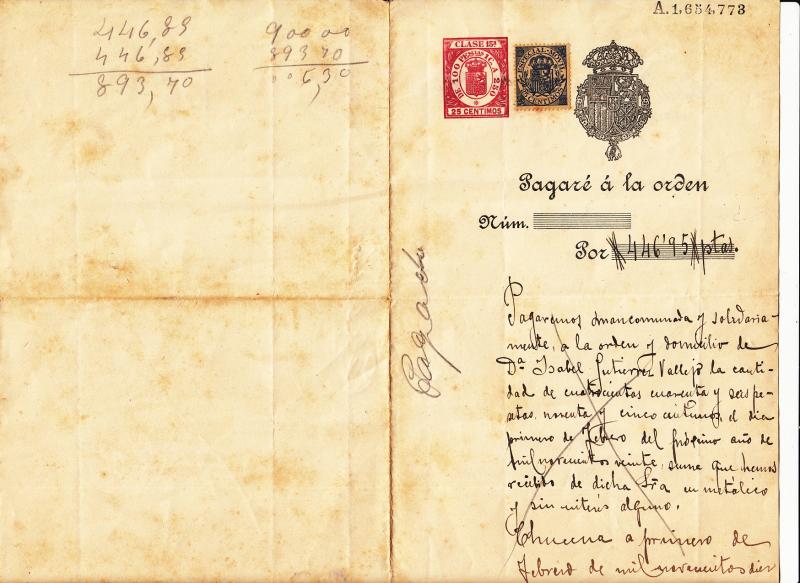 446,85
446,85
893,70
900 00
893 70
006,30
A.1,654,773
CLASE 15ª
DE 100 PESETAS 1 C. A 250
25 CENTIMOS
Pagaré á la orden
Núm.
Por 446'95 ptas.
Pagado
Pagaremos mancomunada y solidaria-
mente, a la orden y domicilio de
Dª Isabel Gutierrez Vallejo la canti-
dad de cuatrocientas cuarenta y seis pe-
setas noventa y cinco centimos, el dia
primero de Febrero del proximo año de
mil novecientos veinte, suma que hemos
recibido de dicha Sra en metálico
y sin interés alguno.
Chucena a primero de
Febrero de mil novecientos diez